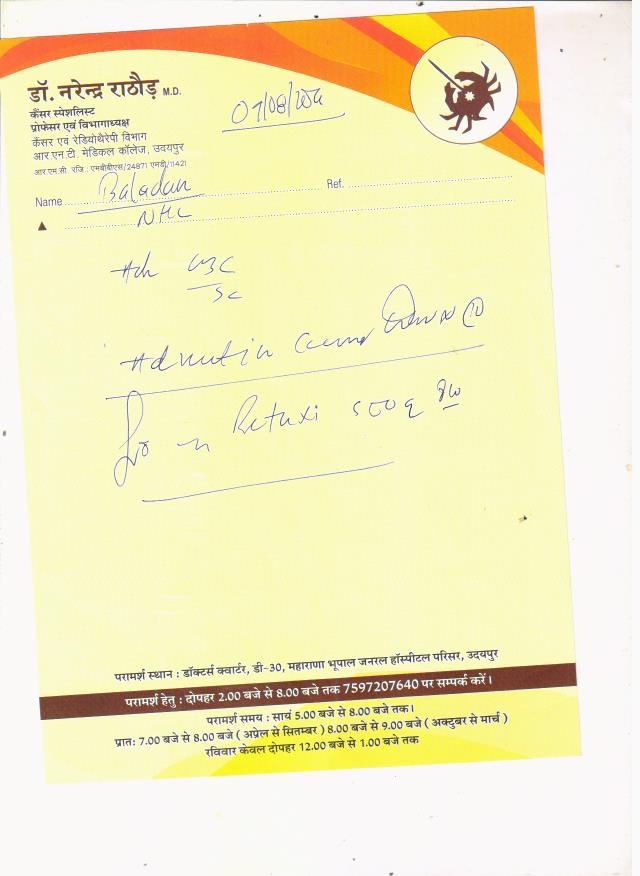 डॉ. नरेन्द्र राठौड़ M.D.
कैंसर स्पेशलिस्ट
प्रोफेसर एवं विभागाध्यक्ष
कैंसर एवं रेडियोथैरेपी विभाग
आर.एन.टी. मेडिकल कॉलेज, उदयपुर
आर.एम.सी. रजि.: एमबीबीएस/24871 एमडी/11421
Name Baladan Ref.
NHL
CBC
in
Rituxi 500
परामर्श स्थान : डॉक्टर्स क्वार्टर, डी-30, महाराणा भूपाल जनरल हॉस्पीटल परिसर, उदयपुर
परामर्श हेतु : दोपहर 2.00 बजे से 8.00 बजे तक 7597207640 पर सम्पर्क करें।
परामर्श समय : सायं 5.00 बजे से 8.00 बजे तक।
प्रातः 7.00 बजे से 8.00 बजे ( अप्रेल से सितम्बर ) 8.00 बजे से 9.00 बजे ( अक्टुबर से मार्च )
रविवार केवल दोपहर 12.00 बजे से 1.00 बजे तक